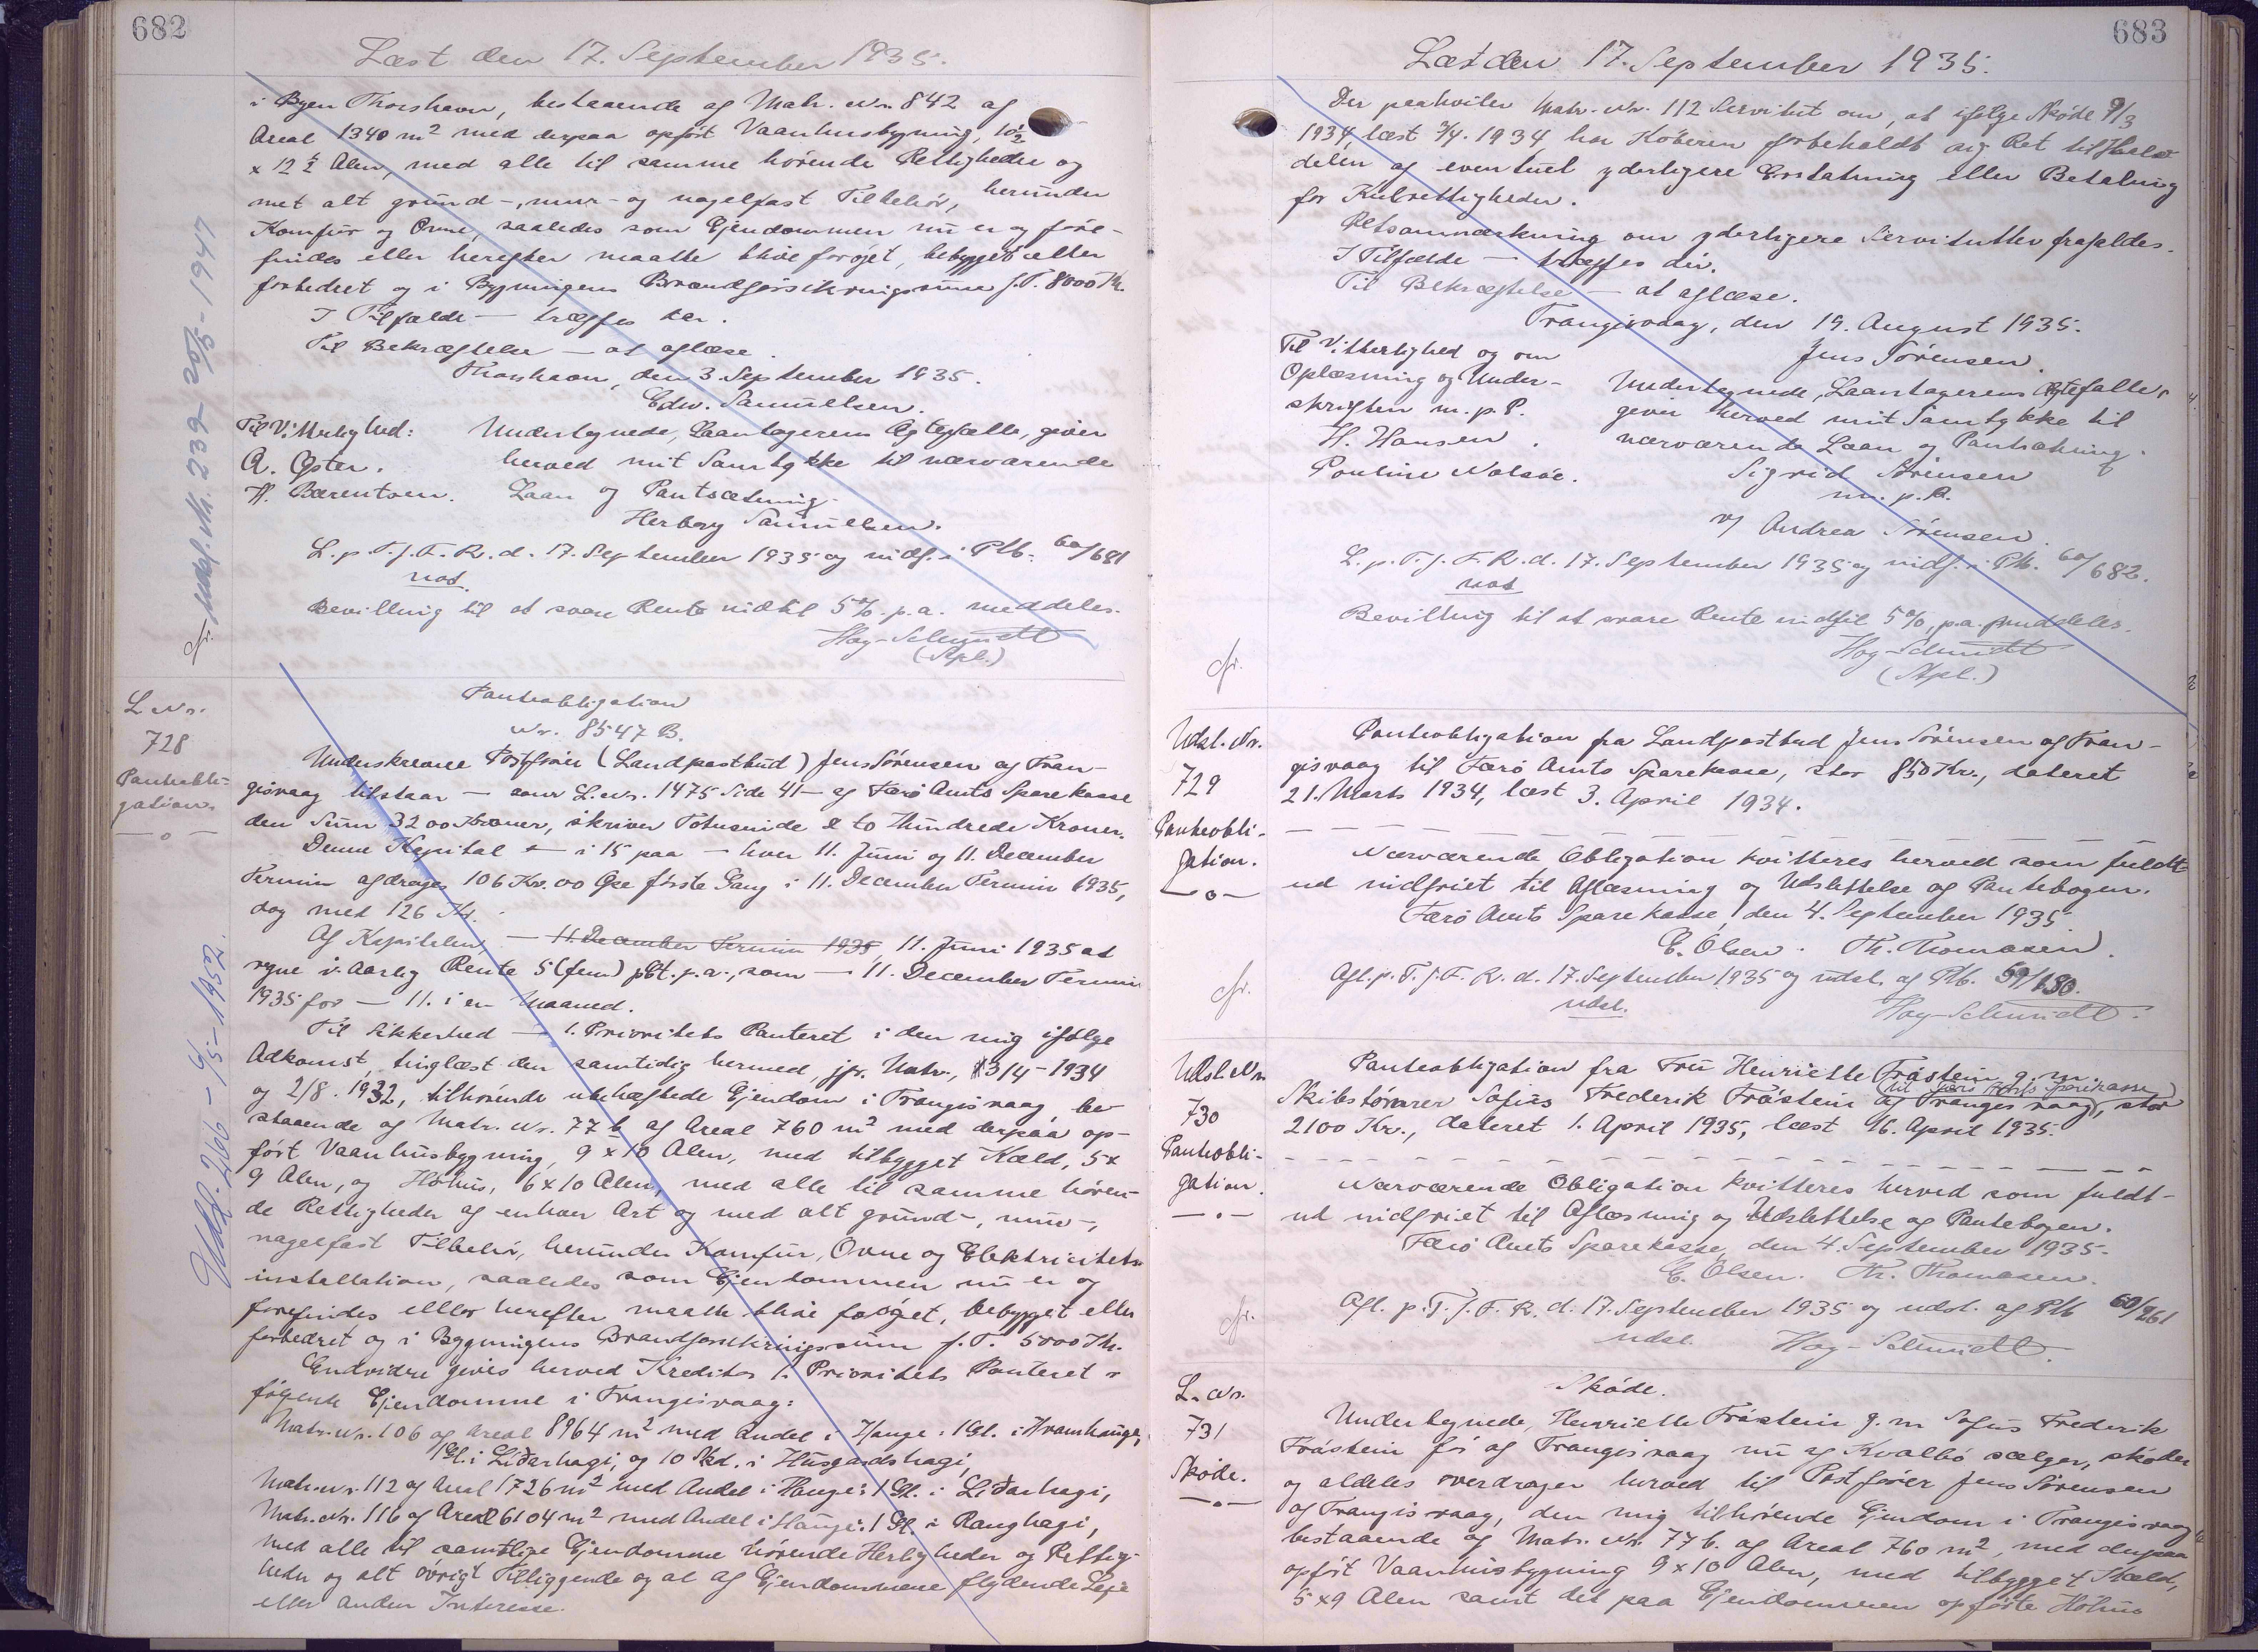 682
Læst den 17. September 1935.
i Byen Thorshavn, bestaaende af Matr. Nr. 842 af
Areal 1340 m² med derpaa opført Vaanhusbygning, 10½
x 12½ Alen, med alle til samme hørende Rettigheder og
met alt grund-, mur- og nagelfast Tilbehør, herunder
Komfur og Ovne, saaledes som Ejendommen nu er og fore-
findes eller herefter maatte blive forøjet, bebygget eller
forbedret og i Bygningens Brandforsikringssum f.T. 8000 Kr.
I Tilfælde — træffes her.
Til Bekræftelse — at aflæse.
Thorshavn, den 3 September 1935.
Edw. Samuelsen.
Til Vitterlighed:
A. Øster.
H. Bærentsen.
Undertegnede, Laantagerens Ægtefælle, giver
herved mit Samtykke til nærværende
Laan og Pantsætning.
Herborg Samuelsen.
L. p. T. f. F. R. d. 17. September 1935 og indf. i Ptb. 60/681
not.
Bevilling til at svare Rente indtil 5 %. p.a. meddeles.
Hoy-Schmidt
(Spl.)
cfr. Udsl. Nr. 239 20/5 - 1947
L. Nr.
728
Panteobli-
gation.
—o—
Panteobligation
Nr. 8547 B.
Underskrevne Postfører (Landpostbud) Jens Sørensen af Tran-
gisvaag tilstaar — anr L. Nr. 1475 Side 41 — af Færø Amts Sparekasse
den Sum 3200 Kroner, skriver Totusinde & to Hundrede Kroner.
Denne Kapital — i 15 paa — hver 11. Juni og 11. December
Termin afdrages 106 Kr. 00 Øre første Gang i 11. December Termin 1935,
dog med 126 Kr.
Af Kapitalen, — 11. December Termin 1935, 11. Juni 1935 at
regne i. Aarlig Rente 5 (fem) pCt. p.a., som — 11. December Termin
1935 for — 11. i en Maaned.
Til Sikkerhed — 1. Prioritets Panteret i den mig ifølge
Adkomst, tinglæst den samtidig hermed, jfr. Matr., 3/4 - 1934
og 2/8. 1932, tilhørende ubehæftede Ejendom i Trangisvaag, be-
staaende af Matr. Nr. 77 b af Areal 760 m² med derpaa op-
ført Vaanhusbygning, 9 x 10 Alen, med tilbygget Kæld, 5 x
9 Alen, og Høhus, 6 x 10 Alen, med alle til samme høren-
de Rettigheder af enhver Art og med alt grund-, mur-,
nagelfast Tilbehør, herunder Komfur, Ovne og Elektricitets-
installation, saaledes som Ejendommen nu er og
forefindes elller herefter maatte blive forøget, bebygget eller
forbedret og i Bygningens Brandforsikringssum f. T. 5000 Kr.
Endvidre gives herved Kreditor 1. Prioritets Panteret i
følgende Ejendomme i Trangisvaag:
Matr. Nr. 106 af Areal 8964 m² med Andel i Hauge: 1 Gl. i Kvamhauge,
1 Gl. i Liðarhagi, og 10 Skd. i Husgardshagi,
Matr. Nr. 112 af Areal 1726 m² med Andel i Hauge: 1 Gl. i Liðarhagi,
Matr. Nr. 116 af Areal 6104 m² med Andel i Hauge: 1 Gl. i Ranghagi,
med alle til samtlige Ejendomme hørende Herligheder og Rettig-
heder og alt øvrigt Tilliggende og al af Ejendommene flydende Leje
eller anden Interesse.
Udsl. 266 - 6/5 - 1952.
683
Læst den 17. September 1935.
Der paahviler Matr. Nr. 112 Servitut om, at ifølge Skøde 9/3
1934, læst 3/4. 1934, har Køberen forbeholdt sig Ret til Halv-
delen af eventuel yderligere Erstatning eller Betaling
for Kulrettigheder.
Retsanmærkning om yderligere Servitutter frafaldes.
I Tilfælde — træffes der.
Til Bekræftelse — at aflæse.
Trangisvaag, den 19. August 1935.
Jens Sørensen.
Til Vitterlighed og om
Oplæsning og Under-
skriften m. p. P.
H. Hansen.
Pouline Nolsøe.
Undertegnede, Laantagerens Ægtefælle,
giver herved mit Samtykke til
nærværende Laan og Pantsætning.
Sigrid Sørensen
m. p. P.
v/ Andrea Sørensen
L. p. T. f. F. R. d. 17. September 1935 og indf. i Ptb. 60/682.
not
Bevilling til at svare Rente indtil 5 %, p.a. meddeles.
Hoy-Schmidt
(Spl.)
cfr.
Udsl. Nr.
729
Panteobli-
gation.
—o—
Panteobligation fra Landpostbud Jens Sørensen af Tran-
gisvaag til Færø Amts Sparekasse, stor 850 Kr., dateret
21. Marts 1934, læst 3. April 1934.
Nærværende Obligation kvitteres herved som fuldt
ud indfriet til Aflæsning og Udslettelse af Pantebogen.
Færø Amts Sparekasse, den 4. September 1935
E. Olsen. Th. Thomasen.
Afl. p. T. f. F. R. d. 17. September 1935 og udsl. af Ptb. 59/180.
udsl.
Hoy-Schmidt.
cfr.
Udsl. Nr.
730
Panteobli-
gation.
—o—
Panteobligation fra Fru Henriette Trástein g. m.
Skibsfører Sofus Frederik Trástein af Trangisvaag, (til Færø Amts Sparekasse) stor
2100 Kr., dateret 1. April 1935, læst 16. April 1935.
Nærværende Obligation kvitteres herved som fuldt-
ud indfriet til Aflæsning og Udslettelse af Pantebogen.
Færø Amts Sparekasse, den 4. September 1935.
E. Olsen. Th. Thomasen.
Afl. p. T. f. F. R. d. 17. September 1935 og udsl. af Ptb 60/261
udsl. Hoy-Schmidt.
cfr.
L. Nr.
731
Skøde.
—o—
Skøde.
Undertegnede, Henriette Trástein g. m Sofus Frederik
Trástein før af Trangisvaag nu af Kvalbø sælger, skøder
og aldeles overdrager herved til Postfører Jens Sørensen
af Trangisvaag, den mig tilhørende Ejendom i Trangisvaag
bestaaende af Matr. Nr. 77 b. af Areal 760 m², med derpaa
opført Vaanhusbygning 9 x 10 Alen, med tilbygget Kæld,
5 x 9 Alen samt det paa Ejendommen opførte Høhus